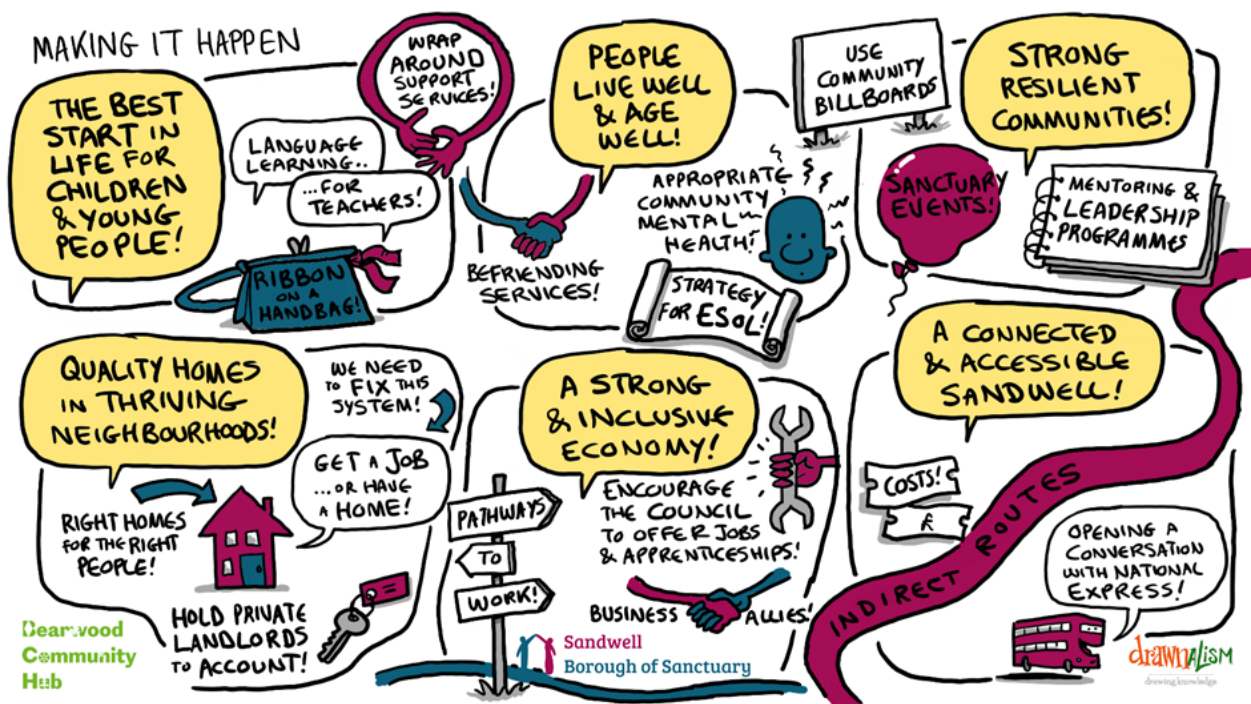 MAKING IT HAPPEN
THE BEST
START IN
LIFE FOR
CHILDREN
& YOUNG
PEOPLE!
LANGUAGE
LEARNING..
...FOR
TEACHERS!
WRAP
AROUND
SUPPORT
SERVICES!
RIBBON
ON A
HANDBAG!
PEOPLE
LIVE WELL
& AGE
WELL!
BEFRIENDING
SERVICES!
APPROPRIATE
COMMUNITY
MENTAL
HEALTH!
STRATEGY
FOR ESOL!
USE
COMMUNITY
BILLBOARDS
STRONG
RESILIENT
COMMUNITIES!
SANCTUARY
EVENTS!
MENTORING &
LEADERSHIP
PROGRAMMES
QUALITY HOMES
IN THRIVING
NEIGHBOURHOODS!
WE NEED
TO FIX THIS
SYSTEM!
GET A JOB
...OR HAVE
A HOME!
RIGHT HOMES
FOR THE RIGHT
PEOPLE!
HOLD PRIVATE
LANDLORDS
TO ACCOUNT!
A STRONG
& INCLUSIVE
ECONOMY!
PATHWAYS
TO
WORK!
ENCOURAGE
THE COUNCIL
TO OFFER JOBS
& APPRENTICESHIPS!
BUSINESS ALLIES!
A CONNECTED
& ACCESSIBLE
SANDWELL!
COSTS!
£
INDIRECT ROUTES
OPENING A
CONVERSATION
WITH NATIONAL
EXPRESS!
Bearwood
Community
Hub
Sandwell
Borough of Sanctuary
drawnalism
drawing knowledge